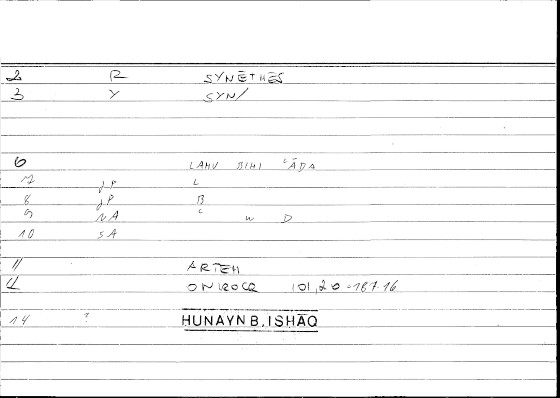 2 R SYNĒTHĒS
3 Y SYN/
6 LAHU BIHI ʿĀDA
7 JP L
8 JP B
9 NA ʿ W D
10 SA
11 ARTEM
12 ONIROCR 101,20 = 187.16
14 ? HUNAYN B. ISHĀQ